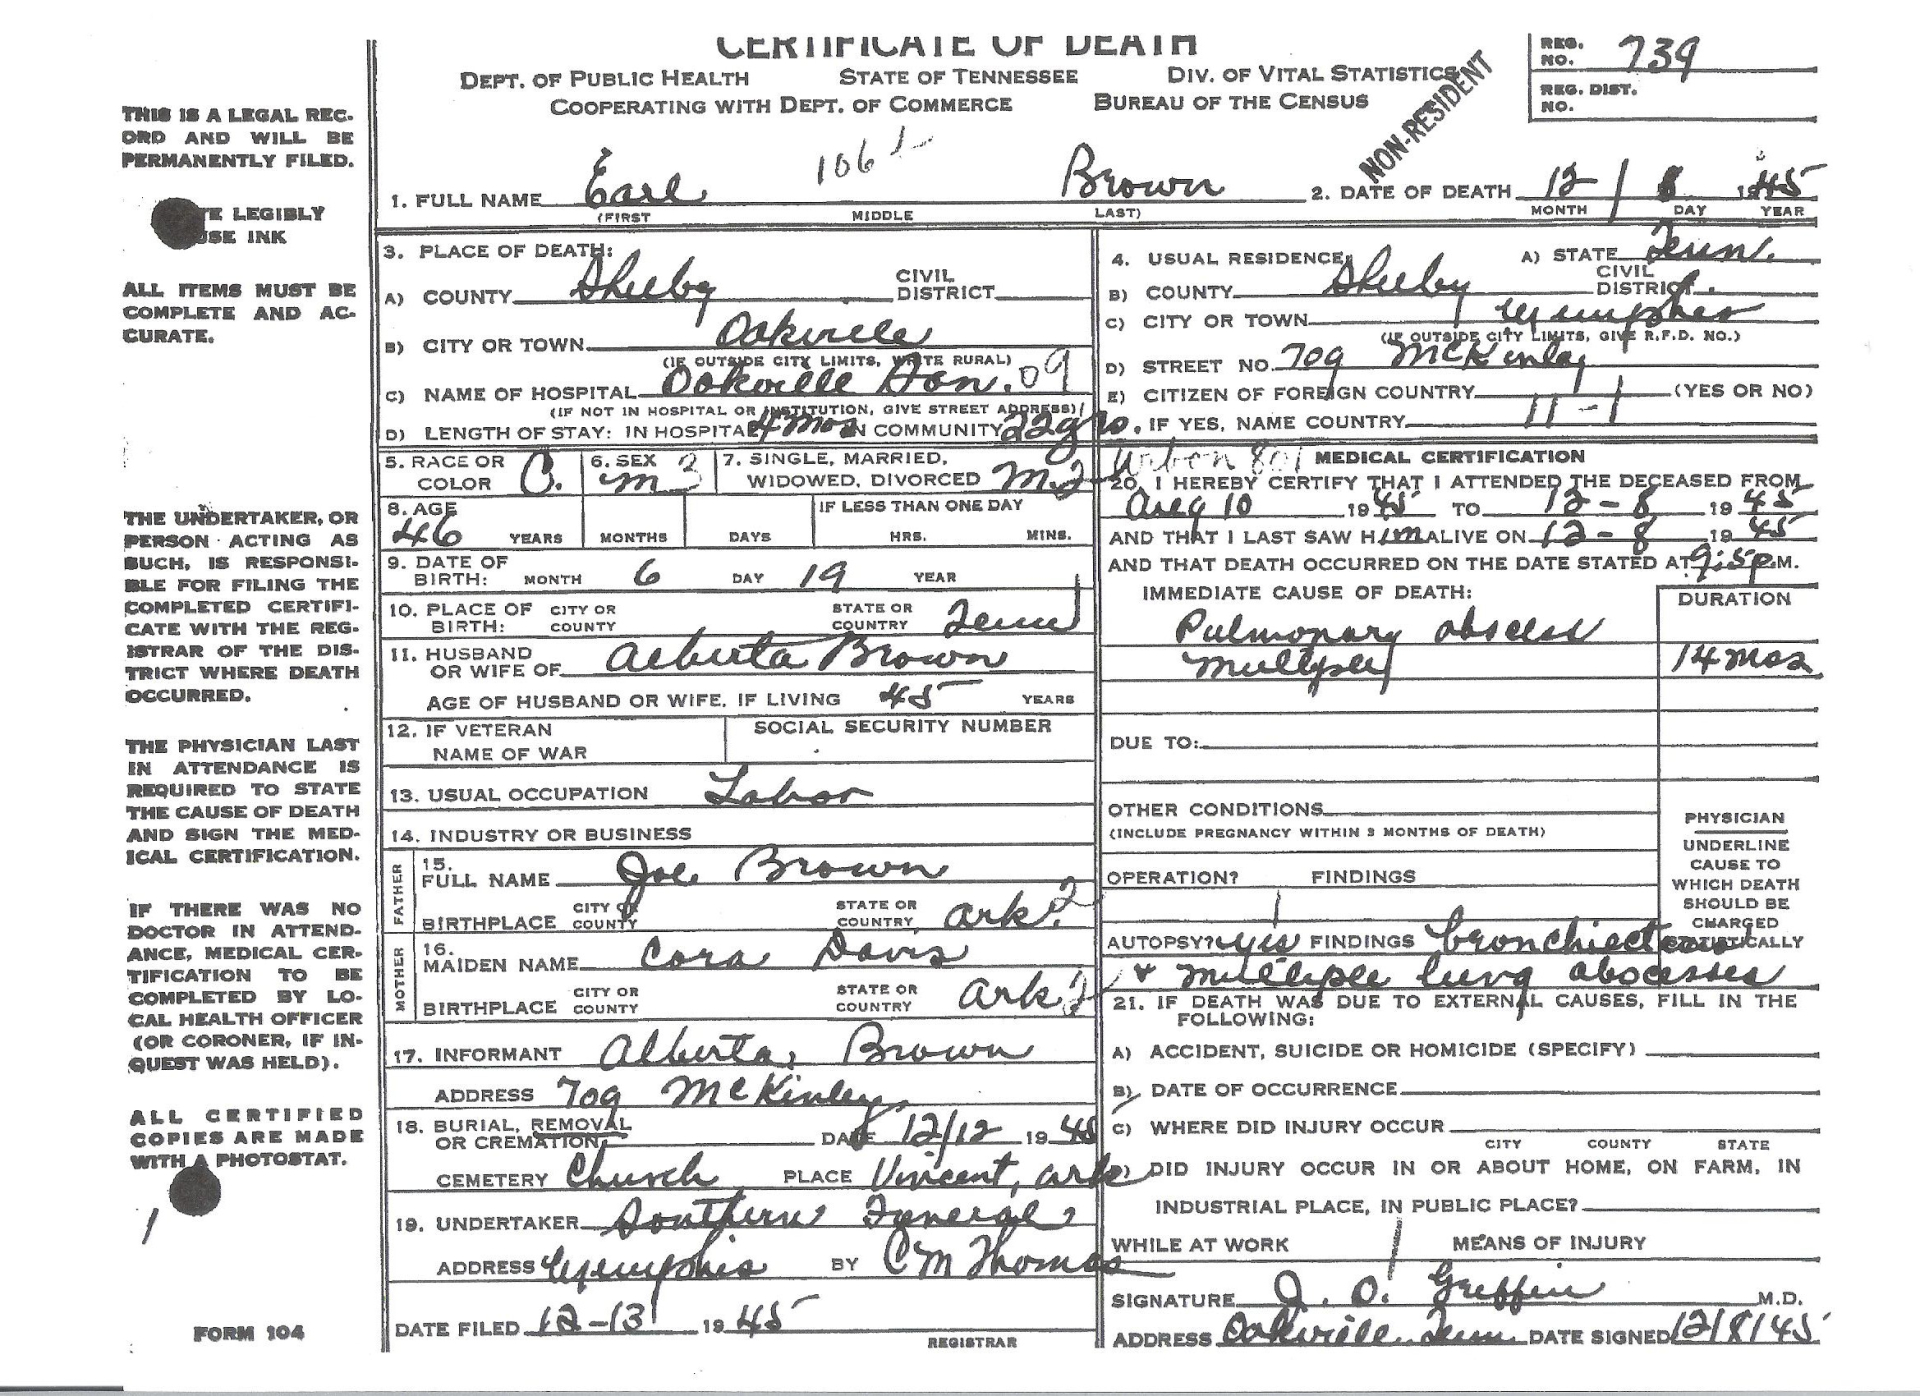 CERTIFICATE OF DEATH
DEPT. OF PUBLIC HEALTH STATE OF TENNESSEE DIV. OF VITAL STATISTICS
COOPERATING WITH DEPT. OF COMMERCE BUREAU OF THE CENSUS
NON-RESIDENT
REG. NO. 739
REG. DIST. NO.
THIS IS A LEGAL REC-
ORD AND WILL BE
PERMANENTLY FILED.
TE LEGIBLY
USE INK
ALL ITEMS MUST BE
COMPLETE AND AC-
CURATE.
THE UNDERTAKER, OR
PERSON ACTING AS
SUCH, IS RESPONSI-
BLE FOR FILING THE
COMPLETED CERTIFI-
CATE WITH THE REG-
ISTRAR OF THE DIS-
TRICT WHERE DEATH
OCCURRED.
THE PHYSICIAN LAST
IN ATTENDANCE IS
REQUIRED TO STATE
THE CAUSE OF DEATH
AND SIGN THE MED-
ICAL CERTIFICATION.
IF THERE WAS NO
DOCTOR IN ATTEND-
ANCE, MEDICAL CER-
TIFICATION TO BE
COMPLETED BY LO-
CAL HEALTH OFFICER
(OR CORONER, IF IN-
QUEST WAS HELD).
ALL CERTIFIED
COPIES ARE MADE
WITH A PHOTOSTAT.
FORM 104
106
1. FULL NAME Earl Brown 2. DATE OF DEATH 12 / 8 1945
(FIRST MIDDLE LAST) MONTH DAY YEAR
3. PLACE OF DEATH:
A) COUNTY Shelby CIVIL DISTRICT
B) CITY OR TOWN Oakville
(IF OUTSIDE CITY LIMITS, WRITE RURAL)
C) NAME OF HOSPITAL Oakville San. 09
(IF NOT IN HOSPITAL OR INSTITUTION, GIVE STREET ADDRESS)
D) LENGTH OF STAY: IN HOSPITAL 4 mos IN COMMUNITY 22
4. USUAL RESIDENCE A) STATE Tenn.
B) COUNTY Shelby CIVIL DISTRICT
C) CITY OR TOWN Memphis
(IF OUTSIDE CITY LIMITS, GIVE R.F.D. NO.)
D) STREET NO. 709 McKinley
E) CITIZEN OF FOREIGN COUNTRY (YES OR NO)
11-1
IF YES, NAME COUNTRY
5. RACE OR COLOR C. 6. SEX m 3 7. SINGLE, MARRIED, WIDOWED, DIVORCED M 2
8. AGE IF LESS THAN ONE DAY
46 YEARS MONTHS DAYS HRS. MINS.
9. DATE OF BIRTH: MONTH 6 DAY 19 YEAR
10. PLACE OF BIRTH: CITY OR COUNTY STATE OR COUNTRY Tenn
11. HUSBAND OR WIFE OF Alberta Brown
AGE OF HUSBAND OR WIFE, IF LIVING 45 YEARS
12. IF VETERAN NAME OF WAR SOCIAL SECURITY NUMBER
13. USUAL OCCUPATION Labor
14. INDUSTRY OR BUSINESS
FATHER
15. FULL NAME Joe Brown
BIRTHPLACE CITY OR COUNTY STATE OR COUNTRY Ark. 2
MOTHER
16. MAIDEN NAME Cora Davis
BIRTHPLACE CITY OR COUNTY STATE OR COUNTRY Ark 2
17. INFORMANT Alberta Brown
ADDRESS 709 McKinley
18. BURIAL, REMOVAL OR CREMATION DATE 12/12 1945
CEMETERY Church PLACE Vincent, Ark
19. UNDERTAKER Southern Funeral
ADDRESS Memphis BY C M Thomas
DATE FILED 12-13 1945
REGISTRAR
Urban 801 MEDICAL CERTIFICATION
20. I HEREBY CERTIFY THAT I ATTENDED THE DECEASED FROM
Aug 10 1945 TO 12-8 1945
AND THAT I LAST SAW HIM ALIVE ON 12-8 1945
AND THAT DEATH OCCURRED ON THE DATE STATED AT P.M.
IMMEDIATE CAUSE OF DEATH: DURATION
Pulmonary abscess
Multiple 14 mos
DUE TO:
OTHER CONDITIONS
(INCLUDE PREGNANCY WITHIN 3 MONTHS OF DEATH)
OPERATION? FINDINGS
PHYSICIAN
UNDERLINE
CAUSE TO
WHICH DEATH
SHOULD BE
CHARGED
STATISTICALLY
AUTOPSY? yes FINDINGS bronchiectasis
+ multiple lung abscesses
21. IF DEATH WAS DUE TO EXTERNAL CAUSES, FILL IN THE
FOLLOWING:
A) ACCIDENT, SUICIDE OR HOMICIDE (SPECIFY)
B) DATE OF OCCURRENCE
C) WHERE DID INJURY OCCUR
CITY COUNTY STATE
D) DID INJURY OCCUR IN OR ABOUT HOME, ON FARM, IN
INDUSTRIAL PLACE, IN PUBLIC PLACE?
WHILE AT WORK MEANS OF INJURY
SIGNATURE J. O. Griffin M.D.
ADDRESS Oakville Tenn DATE SIGNED 12/8/45